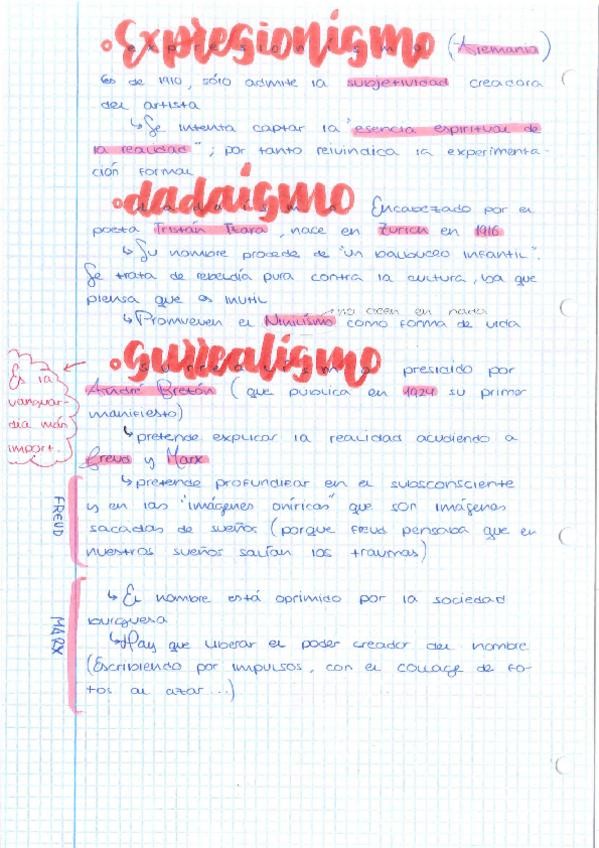 Expresionismo (Alemania)
Es de 1910, sólo admite la subjetividad creadora
del artista
↳ Se intenta captar la "esencia espiritual de
la realidad"; por tanto reivindica la experimenta-
ción formal
dadaísmo Encabezado por el
poeta Tristán Tzara, nace en Zurich en 1916
↳ Su nombre procede de "un balbuceo infantil".
Se trata de rebeldía pura contra la cultura, ya que
piensa que es inutil
no creen en nada
↳ Promueven el Nihilismo como forma de vida
surrealismo presidido por
Es la
vanguar-
dia más
import.
André Bretón (que publica en 1924 su primer
manifiesto)
↳ pretende explicar la realidad acudiendo a
Freud y Marx
FREUD
↳ pretende profundizar en el subsconsciente
y en las "imágenes oníricas" que son imágenes
sacadas de sueños (porque Freud pensaba que en
nuestros sueños salían los traumas)
MARX
↳ El hombre está oprimido por la sociedad
burguesa
↳ Hay que liberar el poder creador del hombre
(Escribiendo por impulsos, con el collage de fo-
tos al azar...)